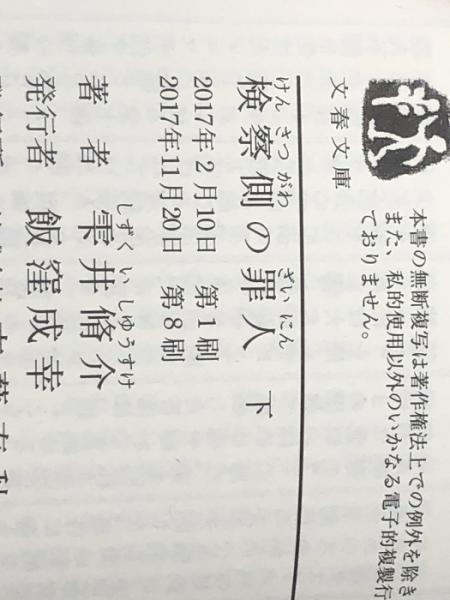 本書の無断複写は著作権法上での例外を除き
また、私的使用以外のいかなる電子的複製行
ておりません。
文春文庫
けんさつがわ ざいにん
検察側の罪人 下
2017年2月10日 第1刷
2017年11月20日 第8刷
しずくいしゆうすけ
著者 雫井脩介
発行者 飯窪成幸